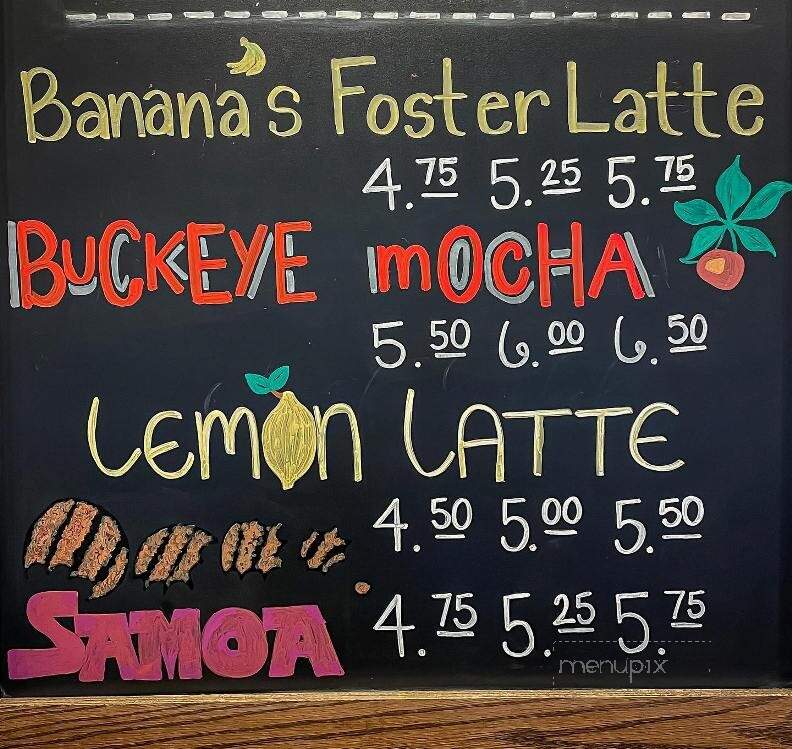 Banana's Foster Latte
4.75 5.25 5.75
BUCKEYE mOCHA
5.50 6.00 6.50
LEMON LATTE
4.50 5.00 5.50
SAMOA
4.75 5.25 5.75
menupix